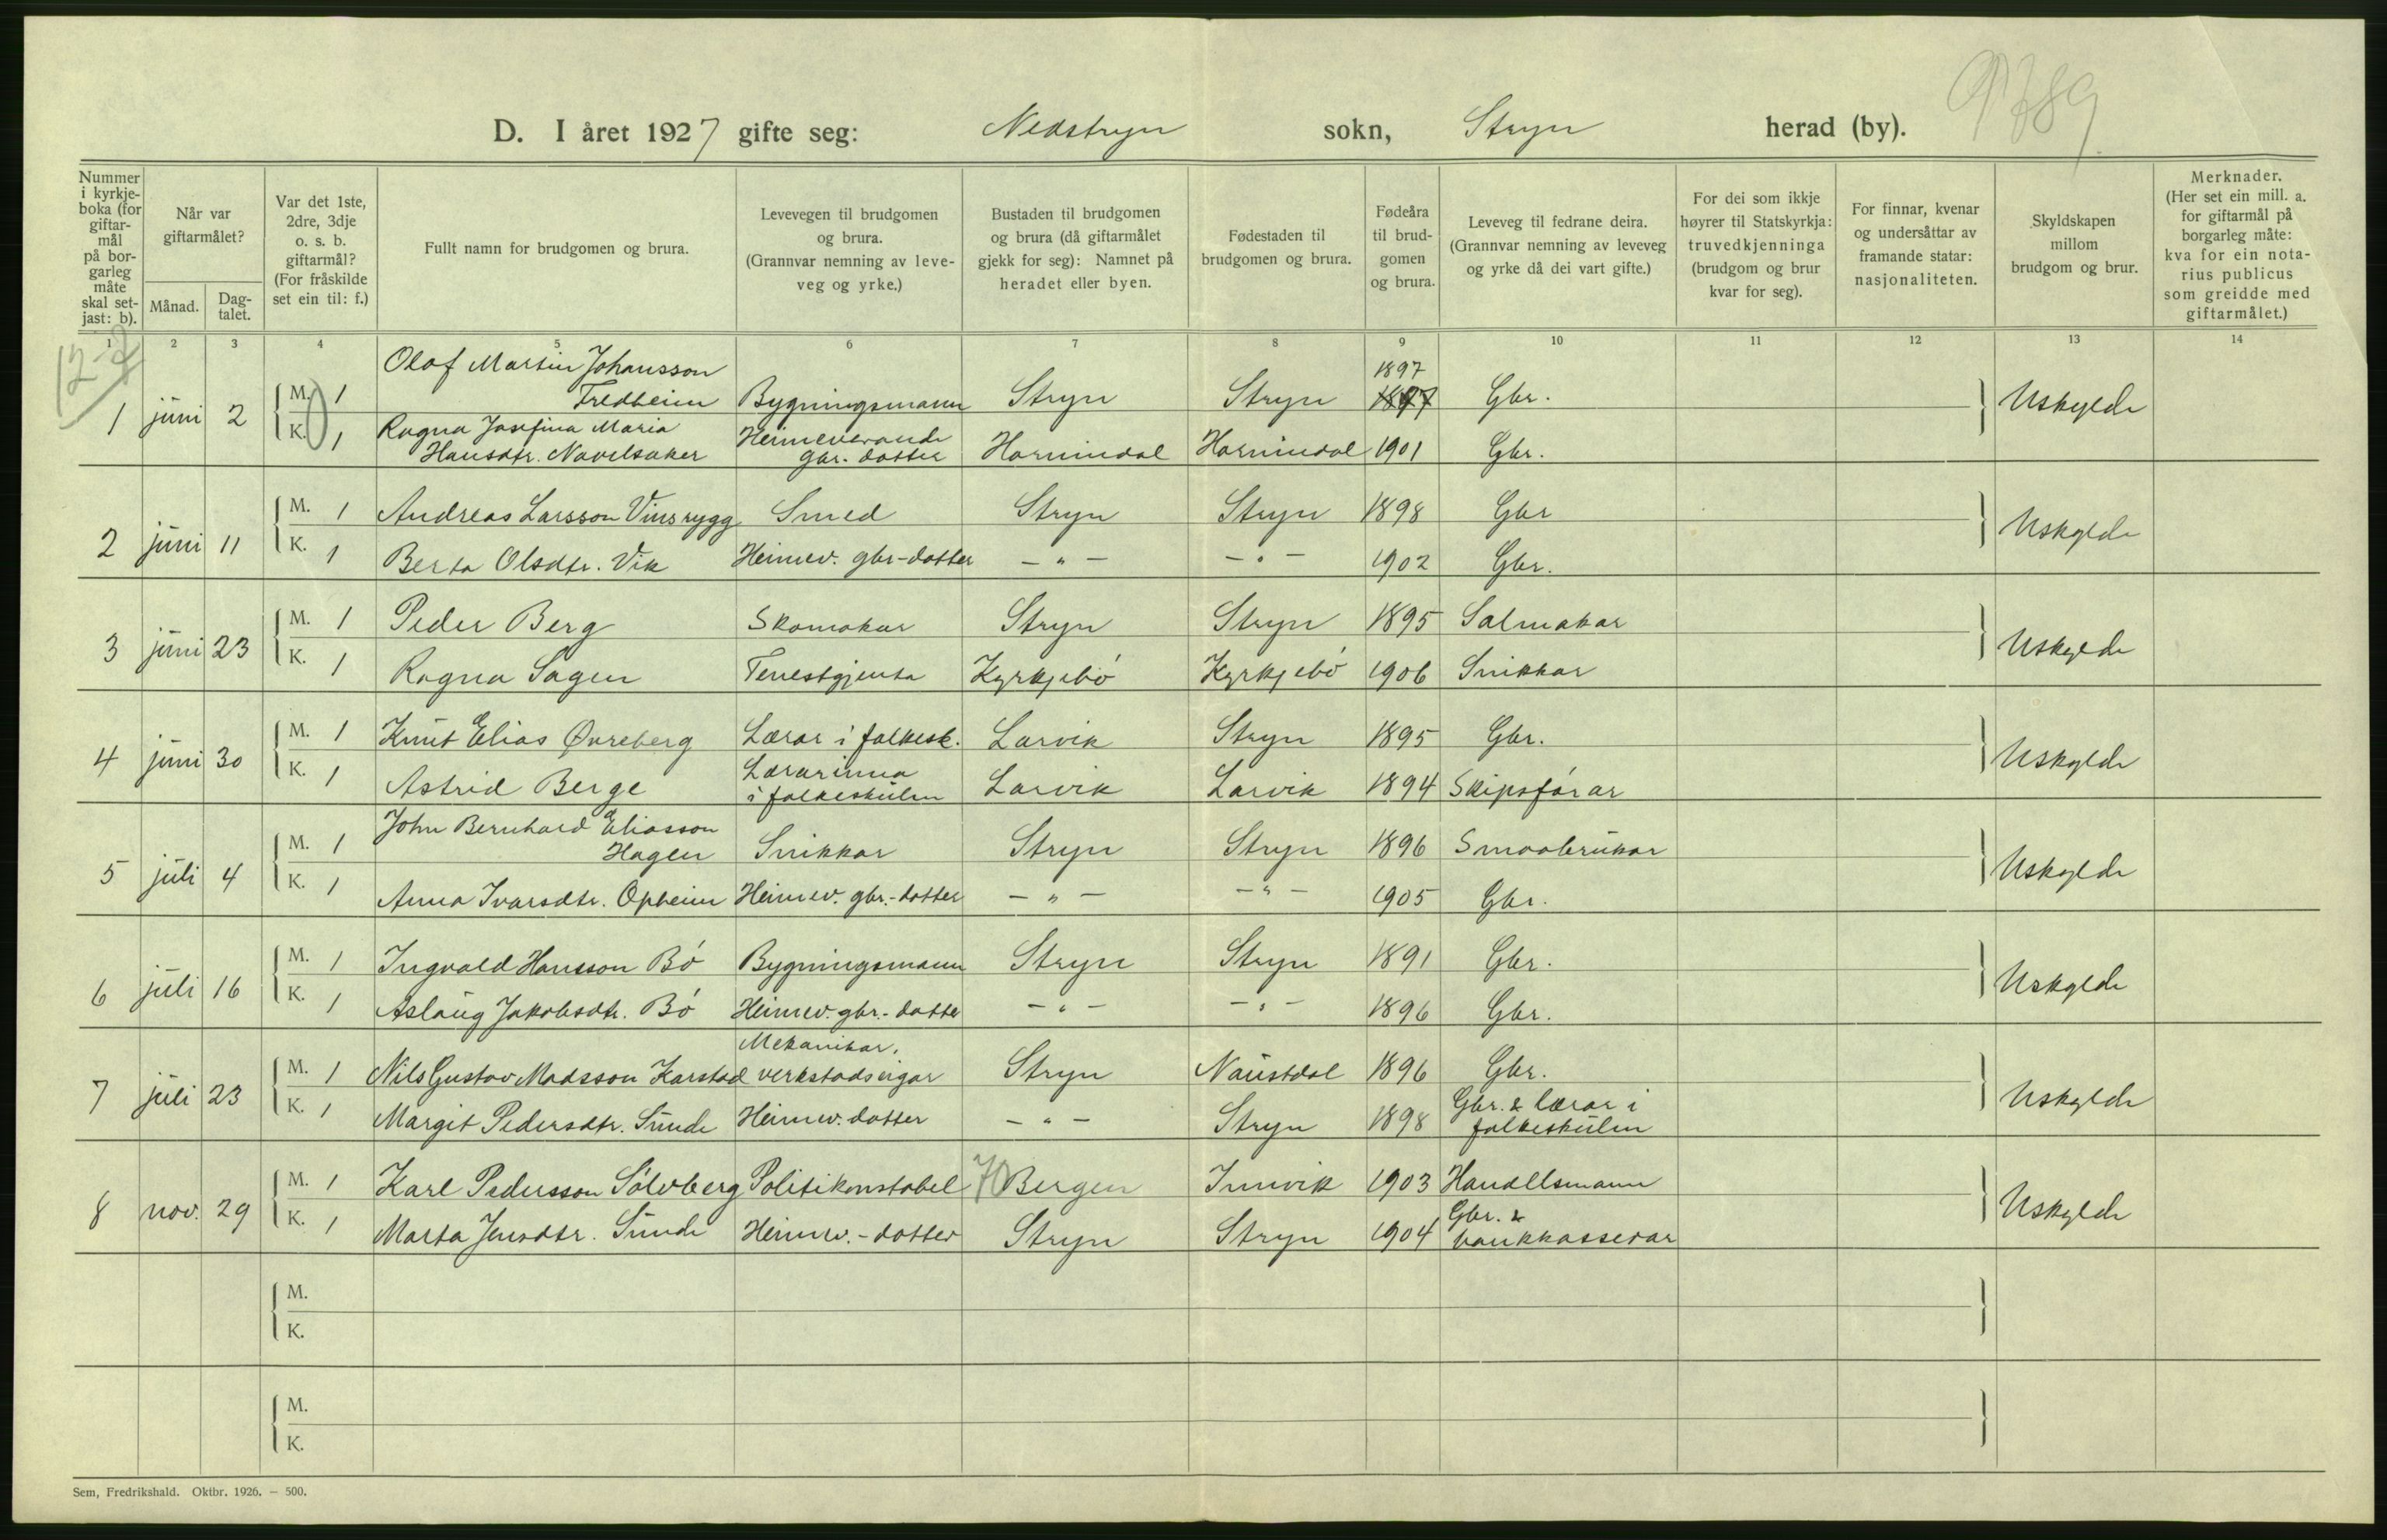 D. I året 1927 gifte seg: Nedstryn sokn, Stryn herad (by).
9789
Nummer i kyrkje-boka (for giftar-mål på bor-garleg måte skal set-jast: b).
Når var giftarmålet?
Månad.
Dag-talet.
Var det 1ste, 2dre, 3dje o. s. b. giftarmål? (For fråskilde set ein til: f.)
Fullt namn for brudgomen og brura.
Levevegen til brudgomen og brura. (Grannvar nemning av leve-veg og yrke.)
Bustaden til brudgomen og brura (då giftarmålet gjekk for seg): Namnet på heradet eller byen.
Fødestaden til brudgomen og brura.
Fødeåra til brud-gomen og brura.
Leveveg til fedrane deira. (Grannvar nemning av leveveg og yrke då dei vart gifte.)
For dei som ikkje høyrer til Statskyrkja: truvedkjenninga (brudgom og brur kvar for seg).
For finnar, kvenar og undersåttar av framande statar: nasjonaliteten.
Skyldskapen millom brudgom og brur.
Merknader. (Her set ein mill. a. for giftarmål på borgarleg måte: kva for ein nota-rius publicus som greidde med giftarmålet.)
1 2 3 4 5 6 7 8 9 10 11 12 13 14
1 juni 2 M. 1 Olaf Martin Johansson Fredheim Bygningsmann Stryn Stryn 1897 Gbr. Uskylde
K. 1 Ragna Josefina Maria Hansdtr. Navelsaker Heimeverande gbr. dotter Hornindal Hornindal 1901 Gbr.
2 juni 11 M. 1 Andreas Larsson Vinsrygg Smed Stryn Stryn 1898 Gbr Uskylde
K. 1 Berta Olsdtr. Vik Heimev. gbr-dotter - " - - " - 1902 Gbr.
3 juni 23 M. 1 Peder Berg Skomakar Stryn Stryn 1895 Salmakar Uskylde
K. 1 Ragna Sagen Tenestgjenta Kyrkjebó Kyrkjebó 1906 Snikkar
4 juni 30 M. 1 Knut Elias Øvreberg Lærar i folkesk. Larvik Stryn 1895 Gbr. Uskylde
K. 1 Astrid Berge Lærarinna i folkeskulen Larvik Larvik 1894 Skipsførar
5 juli 4 M. 1 John Bernhard Eliasson Hagen Snikkar Stryn Stryn 1896 Smaabrukar Uskylde
K. 1 Anna Ivarsdtr. Opheim Heimev. gbr.-dotter - " - - " - 1905 Gbr.
6 juli 16 M. 1 Ingvald Hansson Bó Bygningsmann Stryn Stryn 1891 Gbr. Uskylde
K. 1 Aslaug Jakobsdtr. Bó Heimev. gbr.-dotter - " - - " - 1896 Gbr.
7 juli 23 M. 1 Nils Gustav Madsson Karstad Mekanikar, verkstadseigar Stryn Naustdal 1896 Gbr. Uskylde
K. 1 Margit Pedersdtr. Sunde Heimev. dotter - " - Stryn 1898 Gbr. & lærar i folkeskulen
8 nov. 29 M. 1 Karl Pedersson Sólvberg Politikonstabel Bergen Innvik 1903 Handelsmann Uskylde
K. 1 Marta Jensdtr. Sunde Heimev.-dotter Stryn Stryn 1904 Gbr. & bankkasserar
M.
K.
M.
K.
Sem, Fredrikshald. Oktbr. 1926. — 500.